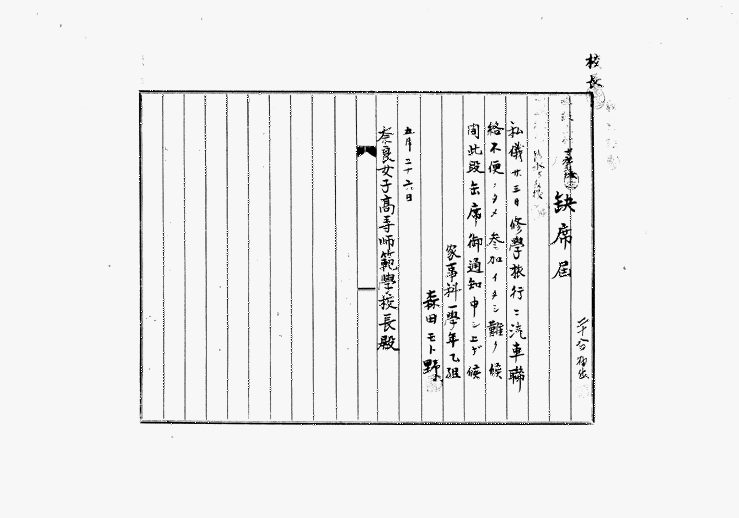 校長
缺席届
私儀廿三日修學旅行ニ汽車聯
絡不便ノタメ参加イタシ難ク候
間此段缺席御通知申シ上ゲ候
家事科一學年乙組
森田モト野
五月二十六日
奈良女子高等師範學校長殿